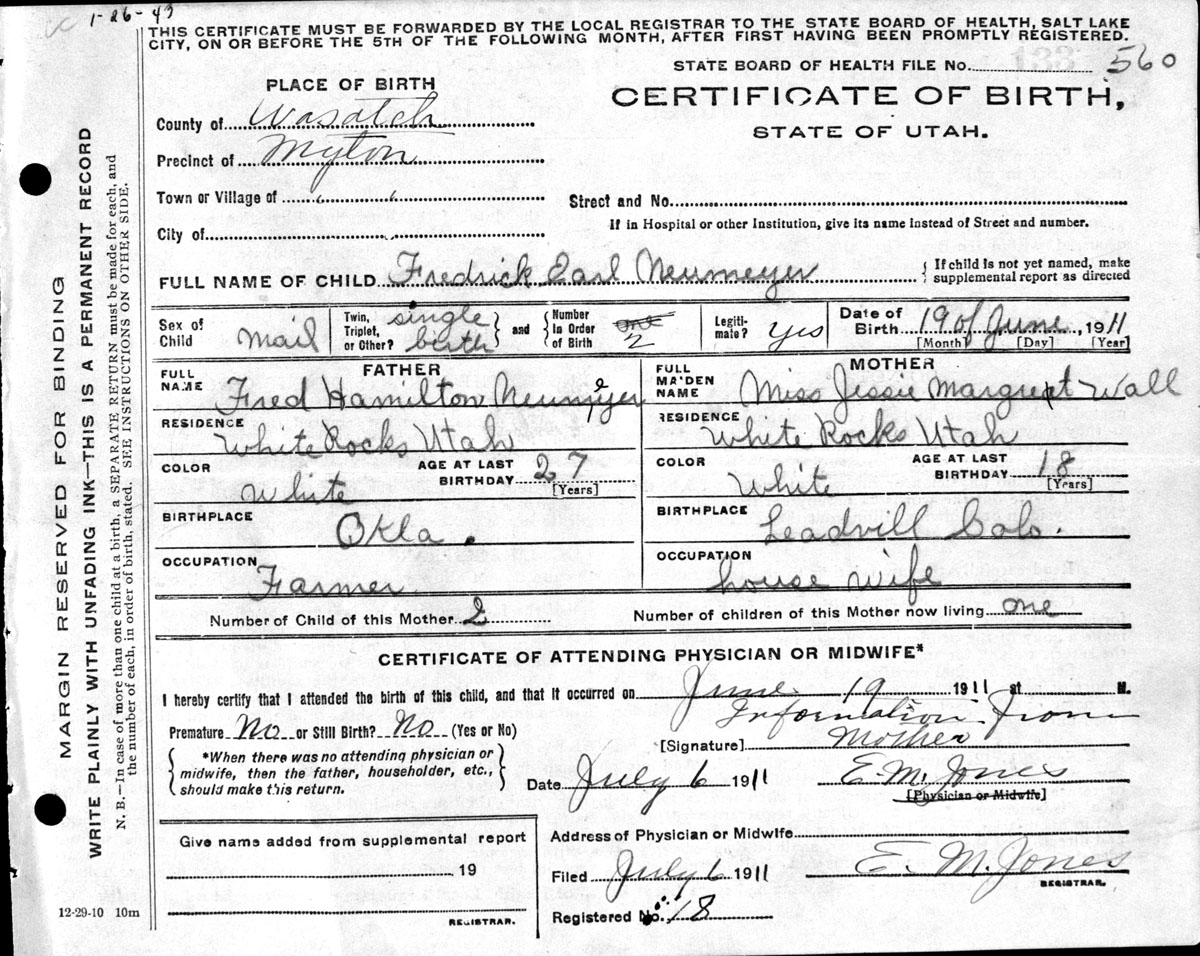 1-26-43
THIS CERTIFICATE MUST BE FORWARDED BY THE LOCAL REGISTRAR TO THE STATE BOARD OF HEALTH, SALT LAKE
CITY, ON OR BEFORE THE 5TH OF THE FOLLOWING MONTH, AFTER FIRST HAVING BEEN PROMPTLY REGISTERED.
STATE BOARD OF HEALTH FILE No. 133 560
PLACE OF BIRTH
CERTIFICATE OF BIRTH,
STATE OF UTAH.
County of Wasatch
Precinct of Myton
Town or Village of " "
Street and No.
If in Hospital or other Institution, give its name instead of Street and number.
City of
FULL NAME OF CHILD Fredrick Earl Neumeyer { If child is not yet named, make
supplemental report as directed
Sex of Child mail Twin, Triplet, or Other? single birth } and { Number in Order of Birth one 2 Legiti-mate? yes Date of Birth 19 of June, 1911
[Month] [Day] [Year]
FATHER MOTHER
FULL NAME Fred Hamilton Neumeyer FULL MAIDEN NAME Miss Jessie Margret Wall
RESIDENCE White Rocks Utah RESIDENCE White Rocks Utah
COLOR White AGE AT LAST BIRTHDAY 27 [Years] COLOR White AGE AT LAST BIRTHDAY 18 [Years]
BIRTHPLACE Okla. BIRTHPLACE Leadvill Colo.
OCCUPATION Farmer OCCUPATION house wife
Number of Child of this Mother 2 Number of children of this Mother now living one
CERTIFICATE OF ATTENDING PHYSICIAN OR MIDWIFE*
I hereby certify that I attended the birth of this child, and that it occurred on June 19 1911 at M.
Information from
Premature No or Still Birth? No (Yes or No)
[Signature] Mother
{ *When there was no attending physician or
midwife, then the father, householder, etc.,
should make this return. }
Date July 6 1911 E. M. Jones
[Physician or Midwife]
Give name added from supplemental report
19
REGISTRAR.
Address of Physician or Midwife
Filed July 6 1911 E. M. Jones
REGISTRAR.
Registered No. 18
12-29-10 10m
MARGIN RESERVED FOR BINDING
WRITE PLAINLY WITH UNFADING INK—THIS IS A PERMANENT RECORD
N. B.—In case of more than one child at a birth, a SEPARATE RETURN must be made for each, and
the number of each, in order of birth, stated. SEE INSTRUCTIONS ON OTHER SIDE.